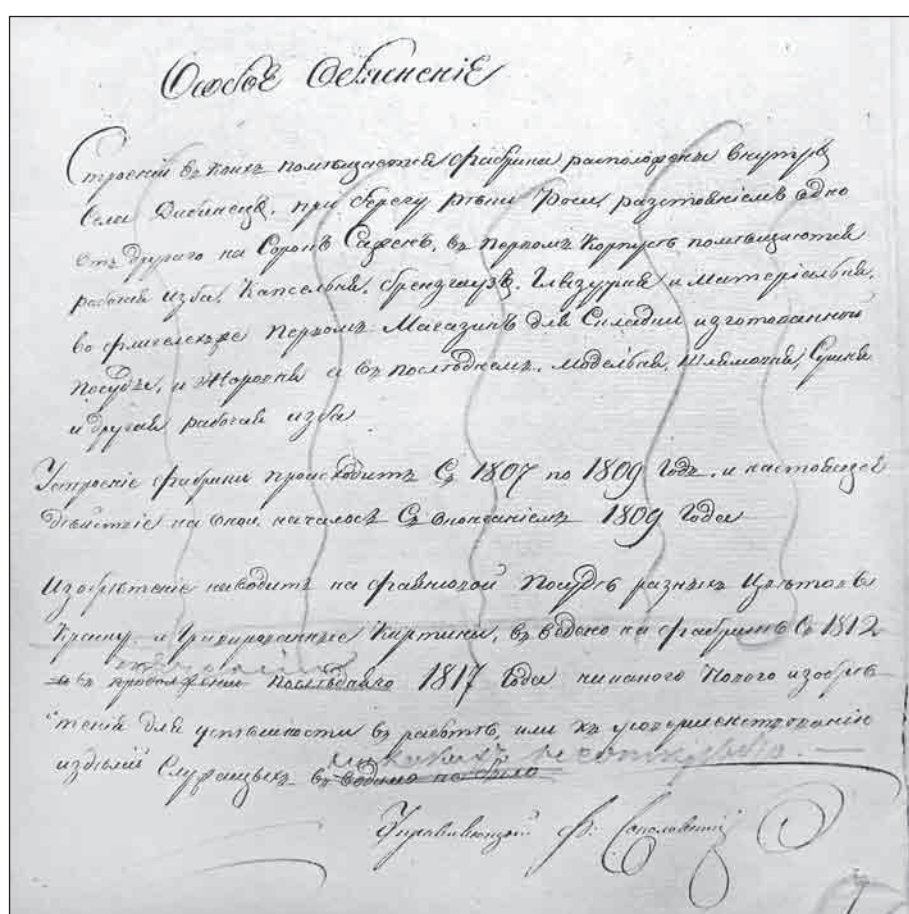 Особое Объясненіе
Строеніи въ коихъ помѣщается фабрика расположены внутрь
Села Дибинецъ, при берегу рѣки Роси, разстояніемъ одно
отъ другаго на Сорокъ Саженъ, въ первомъ Корпусѣ помѣщаются
рабочая изба, Капсельня, бренгаузъ, Глазурня и Матеріальня,
во флигеле же первомъ Магазинъ для Складки изготованной
посуды, и Жарочня и въ послѣднемъ, Модельня, Шлямочня, Сушня
и другая рабочая изба
Устроеніе фабрики происходитъ Съ 1807 по 1809 Годъ, и настоящее
дѣйствіе на оной началось Съ 1809 Года
Изобрѣтеніе наводить на фаянсовой посудѣ разныхъ Цвѣтовъ
Краску и Картины, въведено на фабрикѣ Съ 1812
въ продолженіи послѣдняго 1817 Года никакого Новаго изобрѣ
теній для успѣшности въ работѣ, или къ усовершенствованію
издѣлій Служащихъ въведено не было
Управляющій Ф: